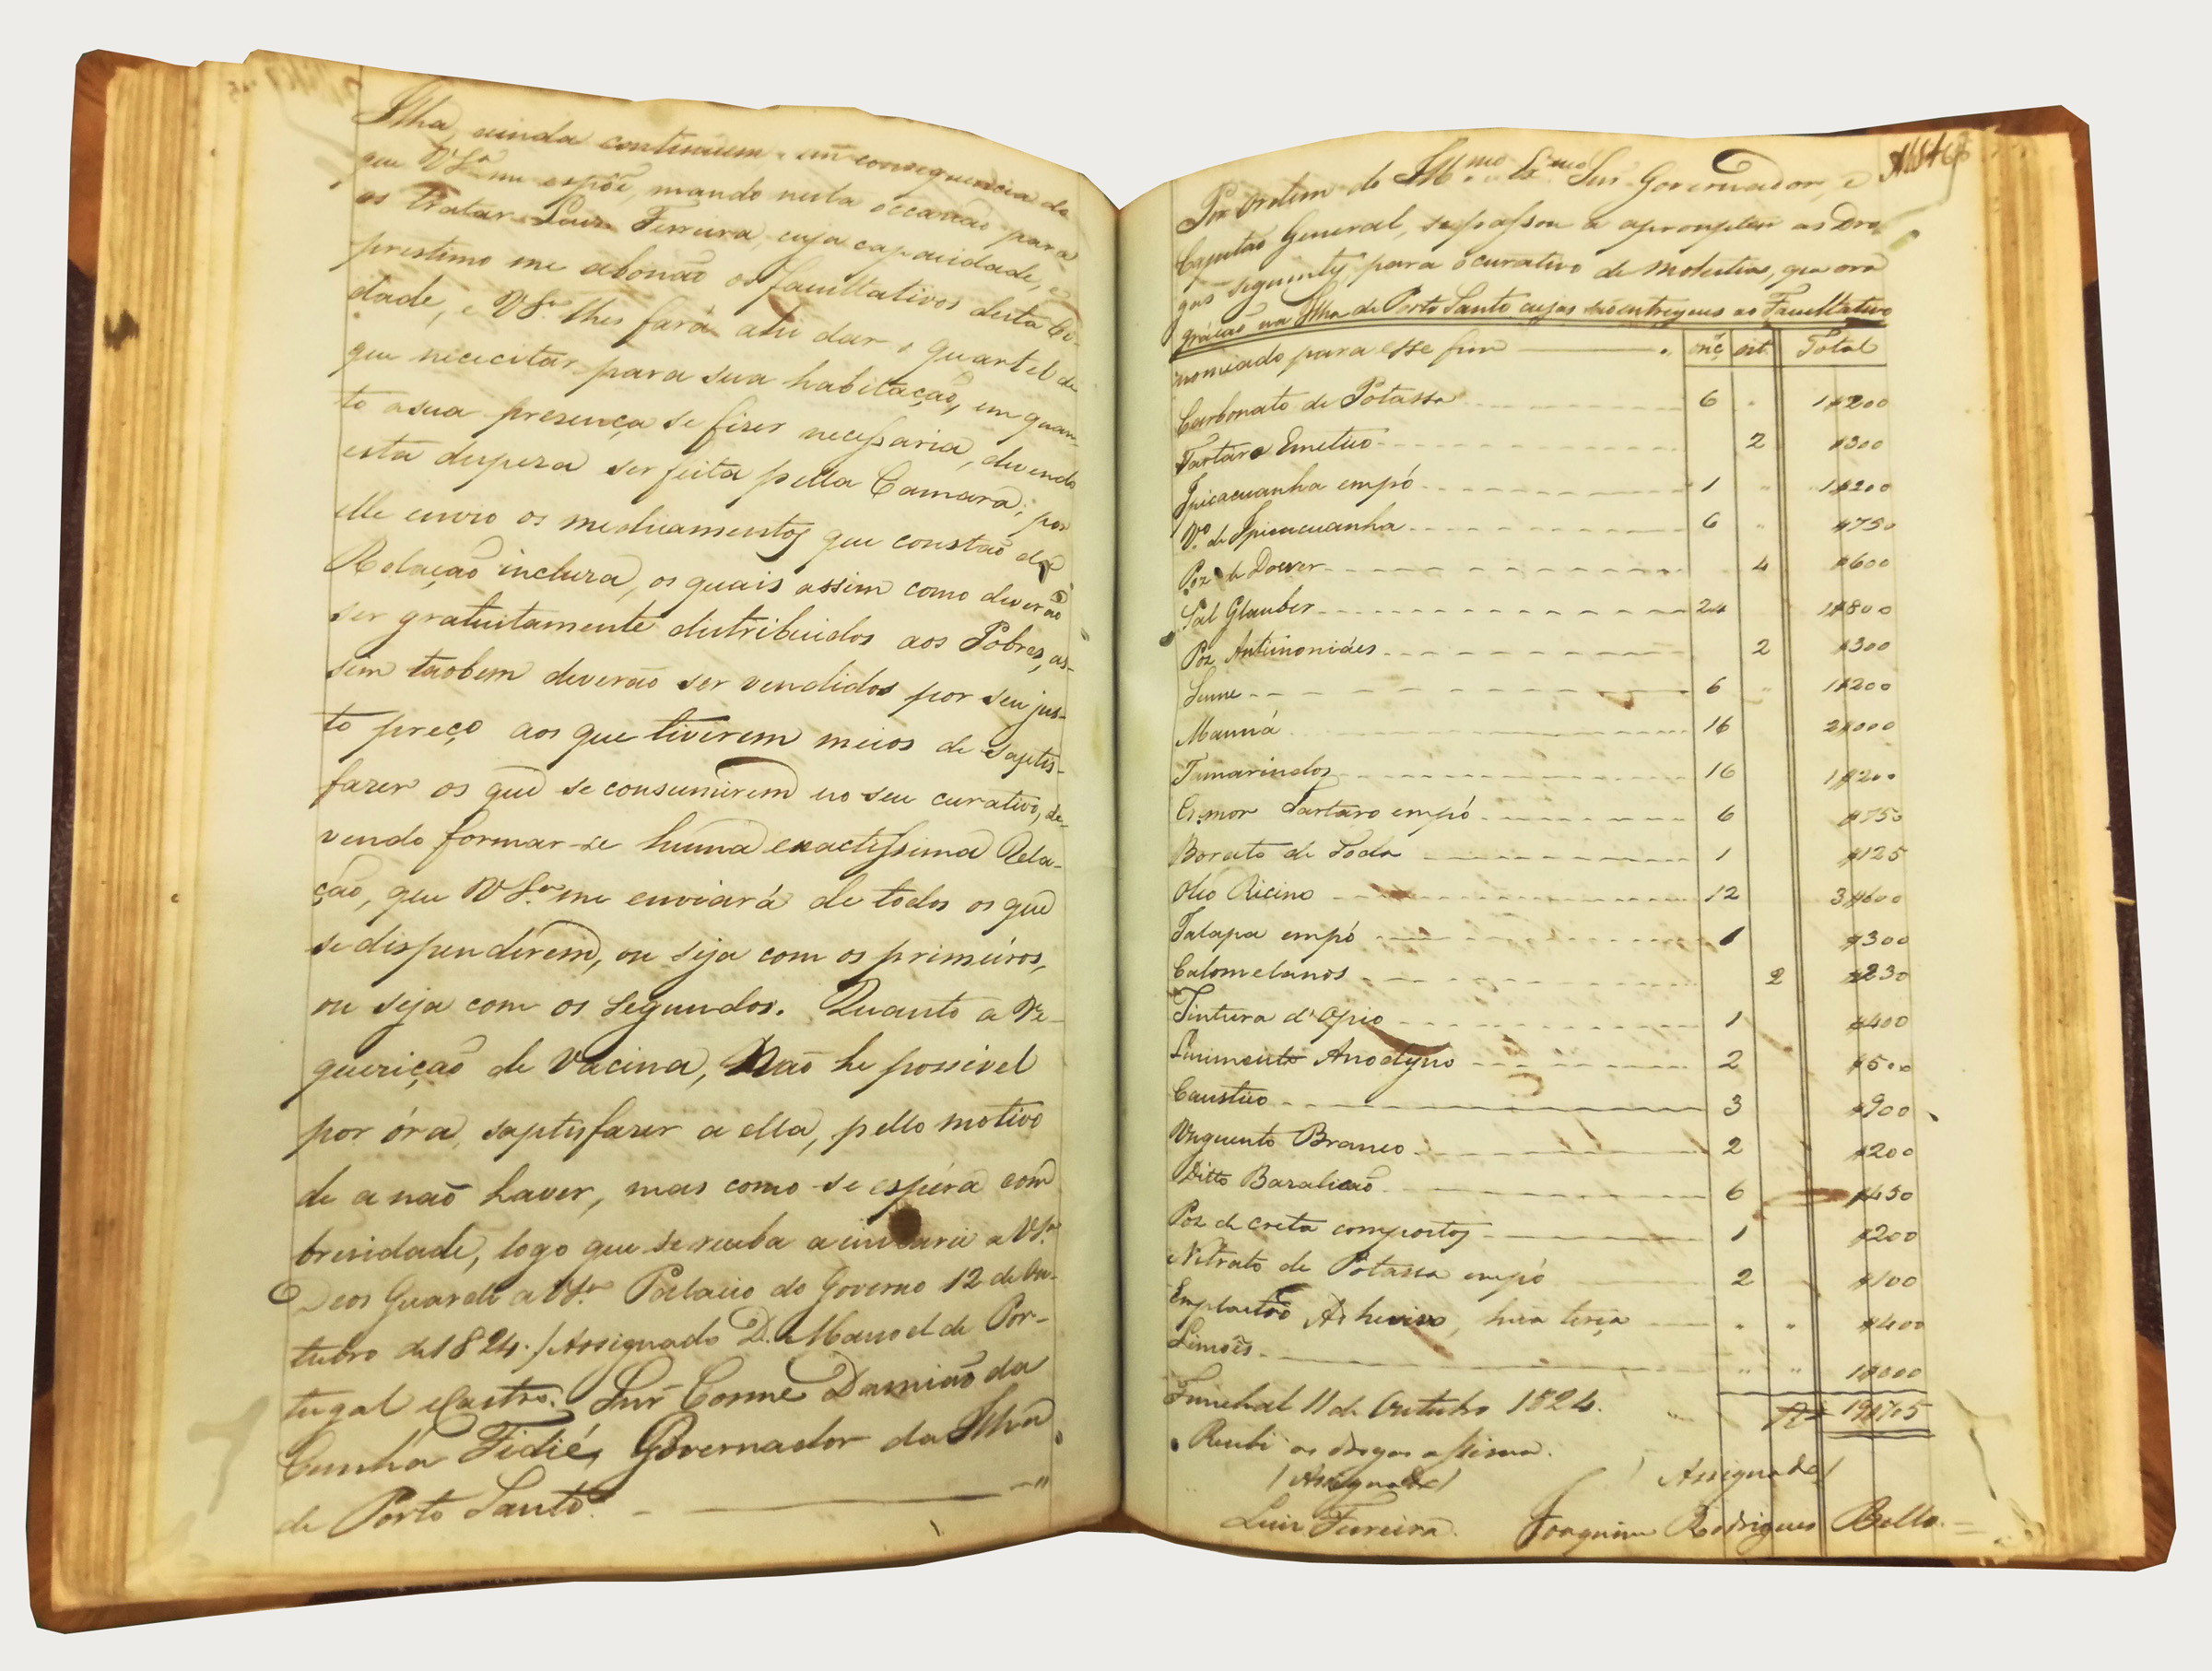 Ilha, ainda continúem. em consequencia do
que V Sª. me espõe, mando nesta occazião para
os tratar Luis Ferreira, cuja capacidade, e
prestimo me abonão os facultativos desta Ci-
dade, e V Sª. lhes fará ahi dar, quartel de
que nececitar para sua habitação, em quan-
to a sua presença se fizer necessaria, devendo
esta despeza ser feita pella Camara; por
elle envio os medicamentos que constão da
Relação incluza, os quais assim como deverão
ser gratuitamente distribuidos aos Pobres, as-
sim taobem deverão ser vendidos por seu jus-
to preço aos que tiverem meios de saptis-
fazer os que se consumirem no seu curativo, de-
vendo formar-se huma exactissima Rela-
ção, que V Sª. me enviará de todos os que
se dispenderem, ou seja com os primeiros,
ou seja com os segundos. Quanto a Re-
querição de Vacina, Não he possivel
por óra, saptisfazer a ella, pello motivo
de a não haver, mas como se espéra com
brevidade, logo que se receba a enviarei a V Sª.
Deos Guarde a V Sª. Palacio do Governo 12 de Ou-
tubro de 1824. / Assignado D. Manoel de Por-
tugal e Castro. Snr. Cosme Damião da
Cunha Fidié, Governador da Ilha
de Porto Santo. - —"
Por ordem do Illmo. Exmo. Snr. Governador, e
Capitão General, se passou a apromptar as Dro-
gas seguintes, para o curativo de molestias, que ora
gráção na Ilha de Porto Santo cujas são entregues ao Facultativo
nomeado para esse fim onç. oit. Total
Carbonato de Potassa 6 " 1$200
Tartaro Emetico 2 $300
Ipicacuanha empó 1 " 1$200
Vº. de Ipicacuanha 6 " $750
Poz de Dower 4 $600
Sal Glauber 24 1$800
Poz Antimoniáes 2 $300
Senne 6 " 1$200
Manná 16 2$000
Tamarindos 16 1$200
Cremor Tartaro empó 6 $750
Borato de Soda 1 $125
Oleo Ricino 12 3$600
Jalapa empó 1 $300
Calomelanos 2 $230
Tintura d'Opio 1 $400
Linimento Anodyno 2 $500
Caustico 3 $900
Unguento Branco 2 $200
Ditto Bazalicão 6 $450
Poz de creta compostos 1 $200
Nitrato de Potassa empó 2 $100
Emplastro Adhesivo, hua terça " " $400
Limões " " 1$000
Funchal 11 de Outubro 1824. Rs 19$705
Recebi as drogas assima.
/Assignado/ /Assignado/
Luis Ferreira. Joaquim Rodrigues Bello.